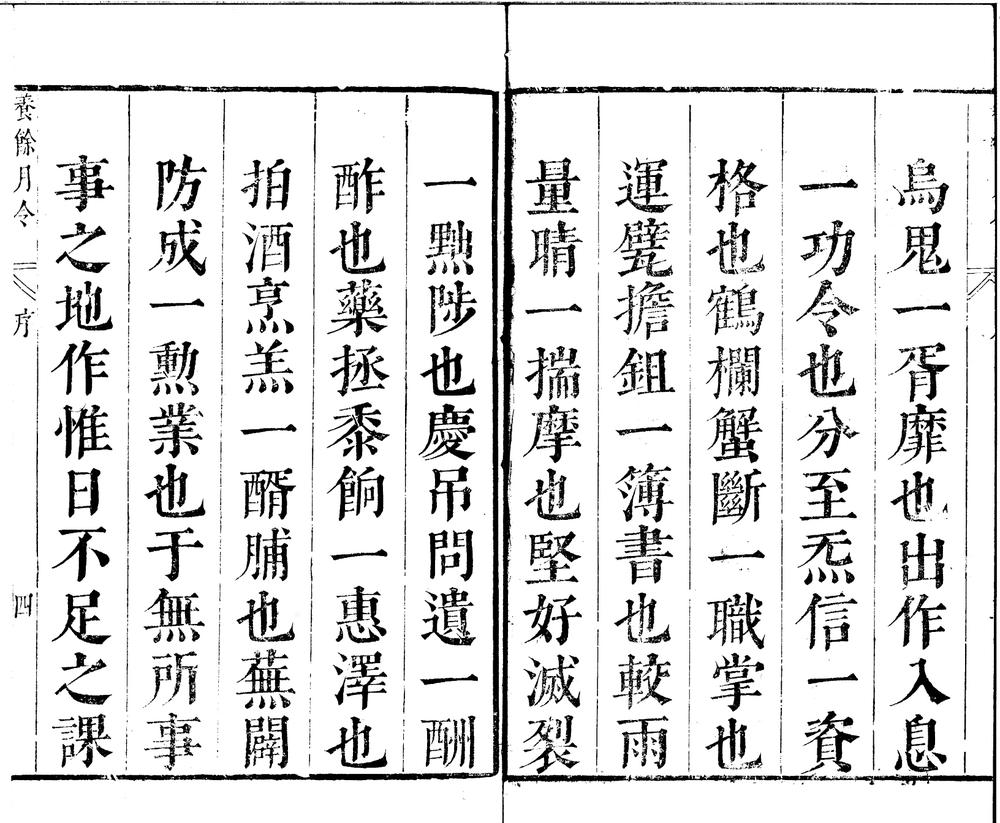 烏鬼一胥靡也出作入息
一功令也分至炁信一資
格也鶴欄蟹斷一職掌也
運甓擔鉏一簿書也較雨
量晴一揣摩也堅好滅裂
一黜陟也慶吊問遺一酬
酢也藥拯黍餉一惠澤也
拍酒烹羔一醑脯也蕪闢
防成一勲業也于無所事
事之地作惟日不足之課
養餘月令
序
四